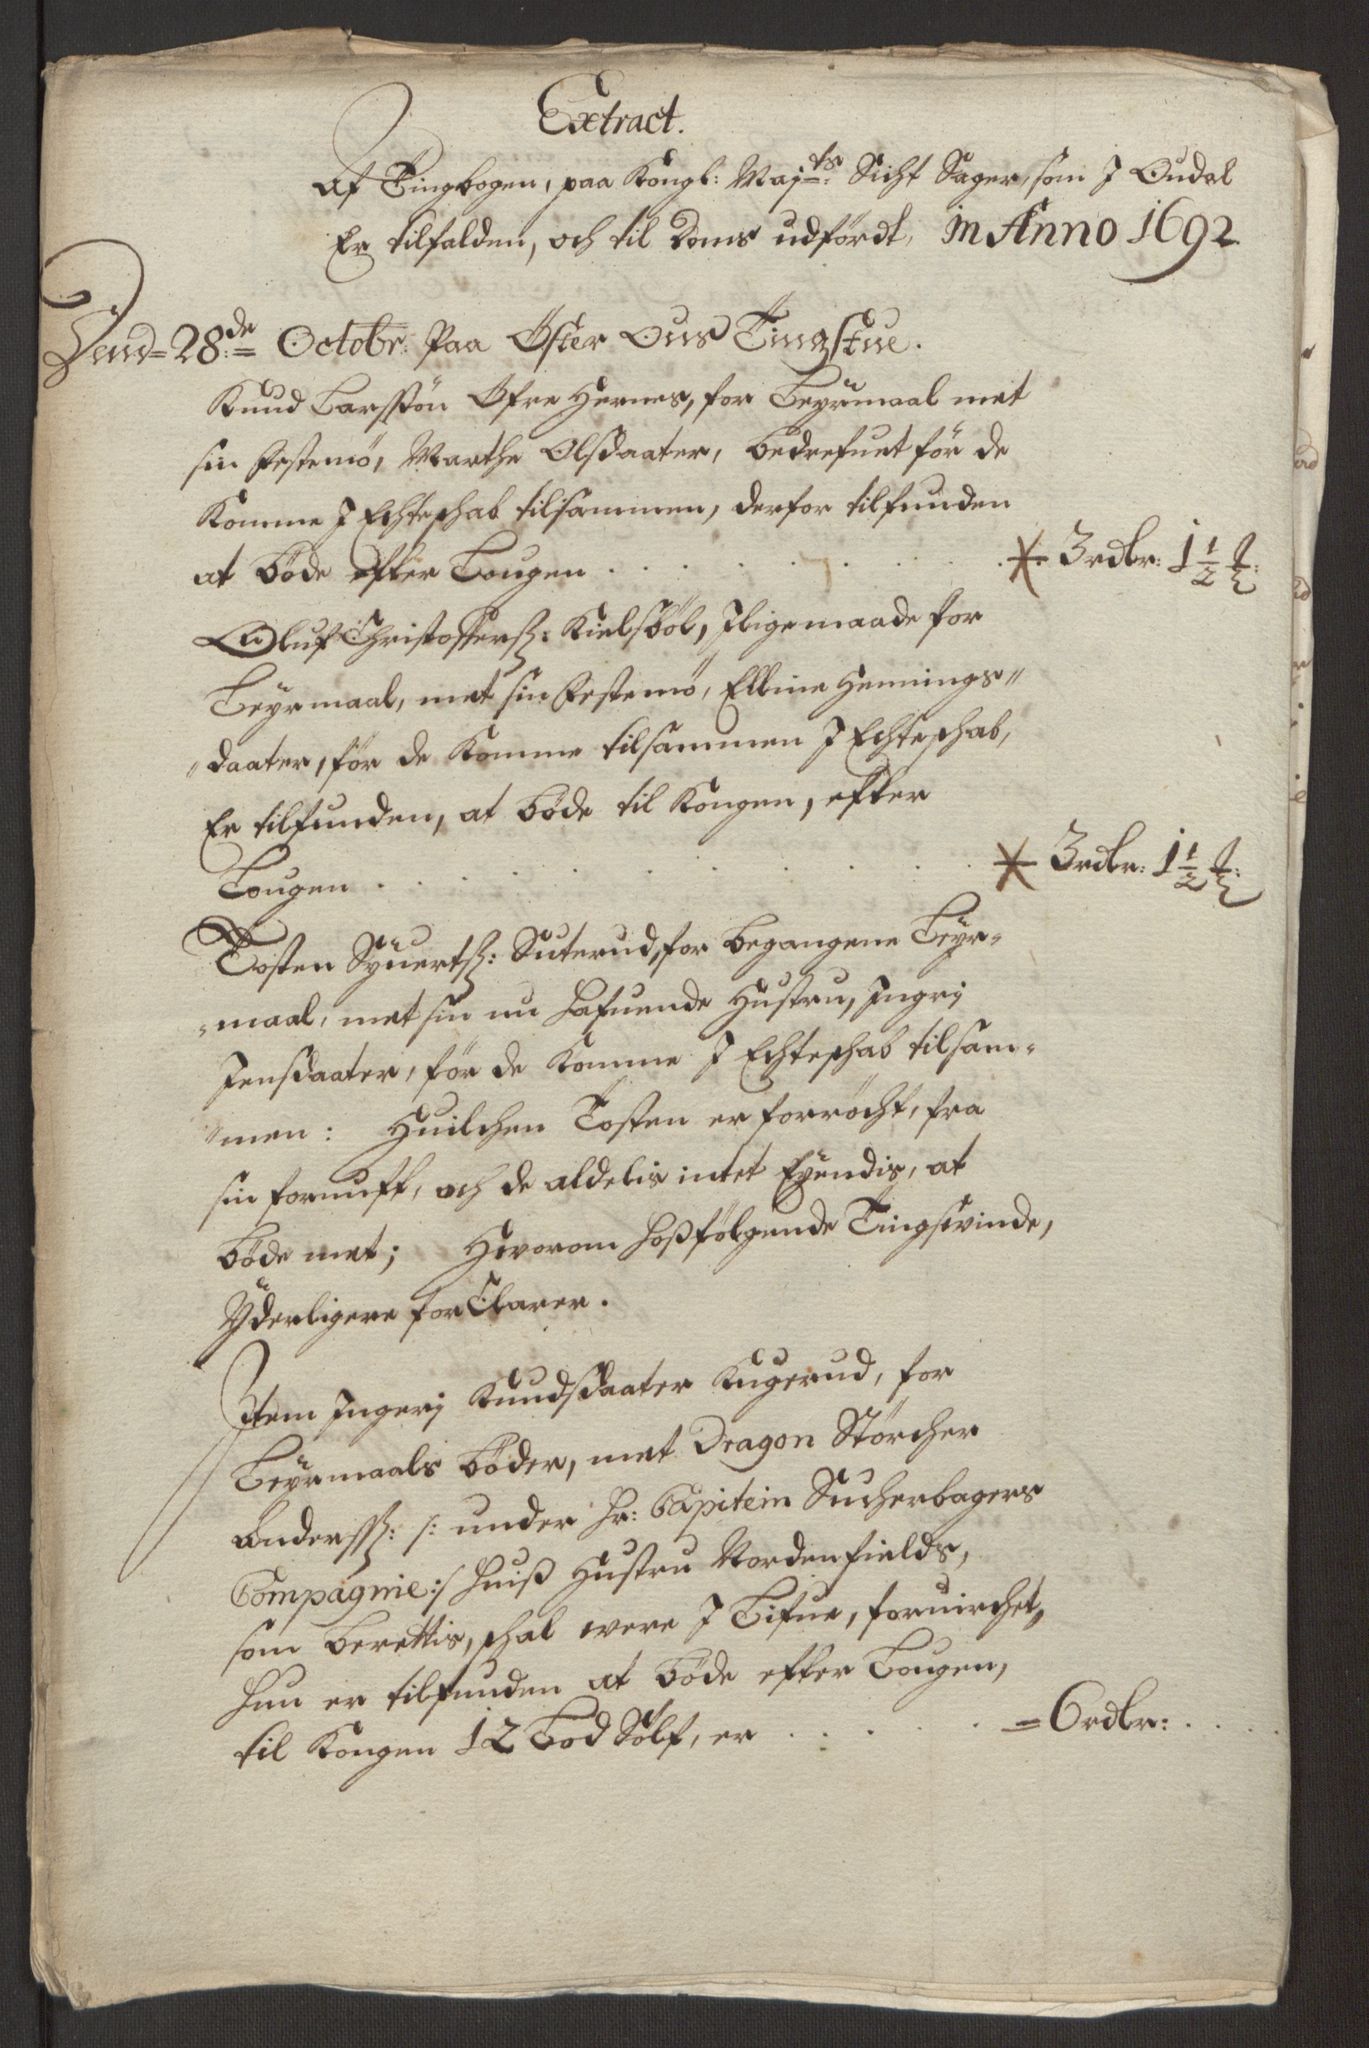 Extract.
Af Tingbogen, paa Kongl: Maj:ts Sicht Sager, som J Oudal
Er tilfalden, och til Doms udfördt, in Anno 1692.
Dend 28:de Octobr: Paa Öster Ous Tingstue.
Knud Larssön Öfre Hernes, for Leÿrmaal met
sin Festemö, Marthe Olsdaater, bedrefuet för de
Komme J Echteschab tilsammen, derfor tilfunden
at böde efter Lougen . . . . . . . 3 rdlr: 1 1/2 #:
Oluf Christoffersß: Kielsböl, Jligemaade for
Leÿrmaal, met sin Festemö, Elline Hennings"
"daater, för de Komme tilsammen J Echteschab,
Er tilfunden, at böde til Kongen, efter
Lougen . . . . . . . . 3 rdlr: 1 1/2 #:
Tosten Sÿuertsß: Suterud, for begangene Leÿr-
-maal, met sin nu hafuende Hustru, Jngrj
Jensdaater, för de Komme J Echteschab tilsam-
"men: Huilchen Tosten er forröcht, fra
sin fornuft, och de aldelis intet Eÿendis, at
böde met; Hvorom hosfölgende Tingsvinde,
Ÿderligere forklarer.
Jtem Jngerj Knudsdaater Kugerud, for
Leÿrmaals böder, met Dragon Störcher
Anderssß: /: under Hr: Capitein Sucherbagers
Compagnie :/ huiß Hustru Nordenfields,
som berettis, schal were J Lifue, foruirchet,
hun er tilfunden at böde efter Lougen,
til Kongen 12 Lod Sölf, er . . . . . = 6 rdlr: . . . .